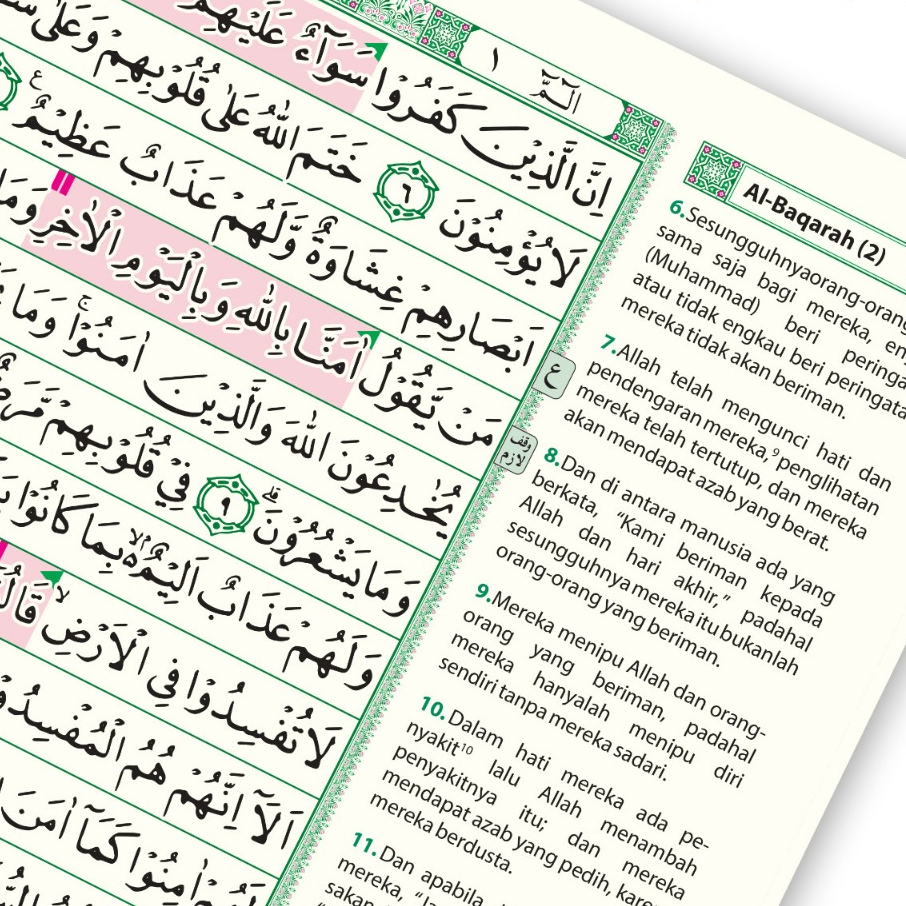 الٓمّٓ ١
اِنَّ الَّذِيْنَ كَفَرُوْا سَوَآءٌ عَلَيْهِمْ
لَا يُؤْمِنُوْنَ ٦ خَتَمَ اللّٰهُ عَلٰى قُلُوْبِهِمْ وَعَلٰى
اَبْصَارِهِمْ غِشَاوَةٌ وَّلَهُمْ عَذَابٌ عَظِيْمٌ
مَنْ يَّقُوْلُ اٰمَنَّا بِاللّٰهِ وَبِالْيَوْمِ الْاٰخِرِ وَمَا
يُخٰدِعُوْنَ اللّٰهَ وَالَّذِيْنَ اٰمَنُوْا ۚ وَمَا
وَمَا يَشْعُرُوْنَ ۗ ٩ فِيْ قُلُوْبِهِمْ مَّرَضٌ
وَلَهُمْ عَذَابٌ اَلِيْمٌ ۢ ەۙ بِمَا كَانُوْا
لَا تُفْسِدُوْا فِى الْاَرْضِ ۙ
اَلَآ اِنَّهُمْ هُمُ الْمُفْسِدُوْنَ
اٰمِنُوْا كَمَآ اٰمَنَ
ع
وقف لازم
Al-Baqarah (2)
6.Sesungguhnyaorang-orang
sama saja bagi mereka, en
(Muhammad) beri peringa
atau tidak engkau beri peringata
mereka tidak akan beriman.
7.Allah telah mengunci hati dan
pendengaran mereka,⁹penglihatan
mereka telah tertutup, dan mereka
akan mendapat azab yang berat.
8.Dan di antara manusia ada yang
berkata, "Kami beriman kepada
Allah dan hari akhir," padahal
sesungguhnya mereka itu bukanlah
orang-orang yang beriman.
9.Mereka menipu Allah dan orang-
orang yang beriman, padahal
mereka hanyalah menipu diri
sendiri tanpa mereka sadari.
10.Dalam hati mereka ada pe-
nyakit¹⁰ lalu Allah menambah
penyakitnya itu; dan mereka
mendapat azab yang pedih, kare
mereka berdusta.
11.Dan apabila
mereka,